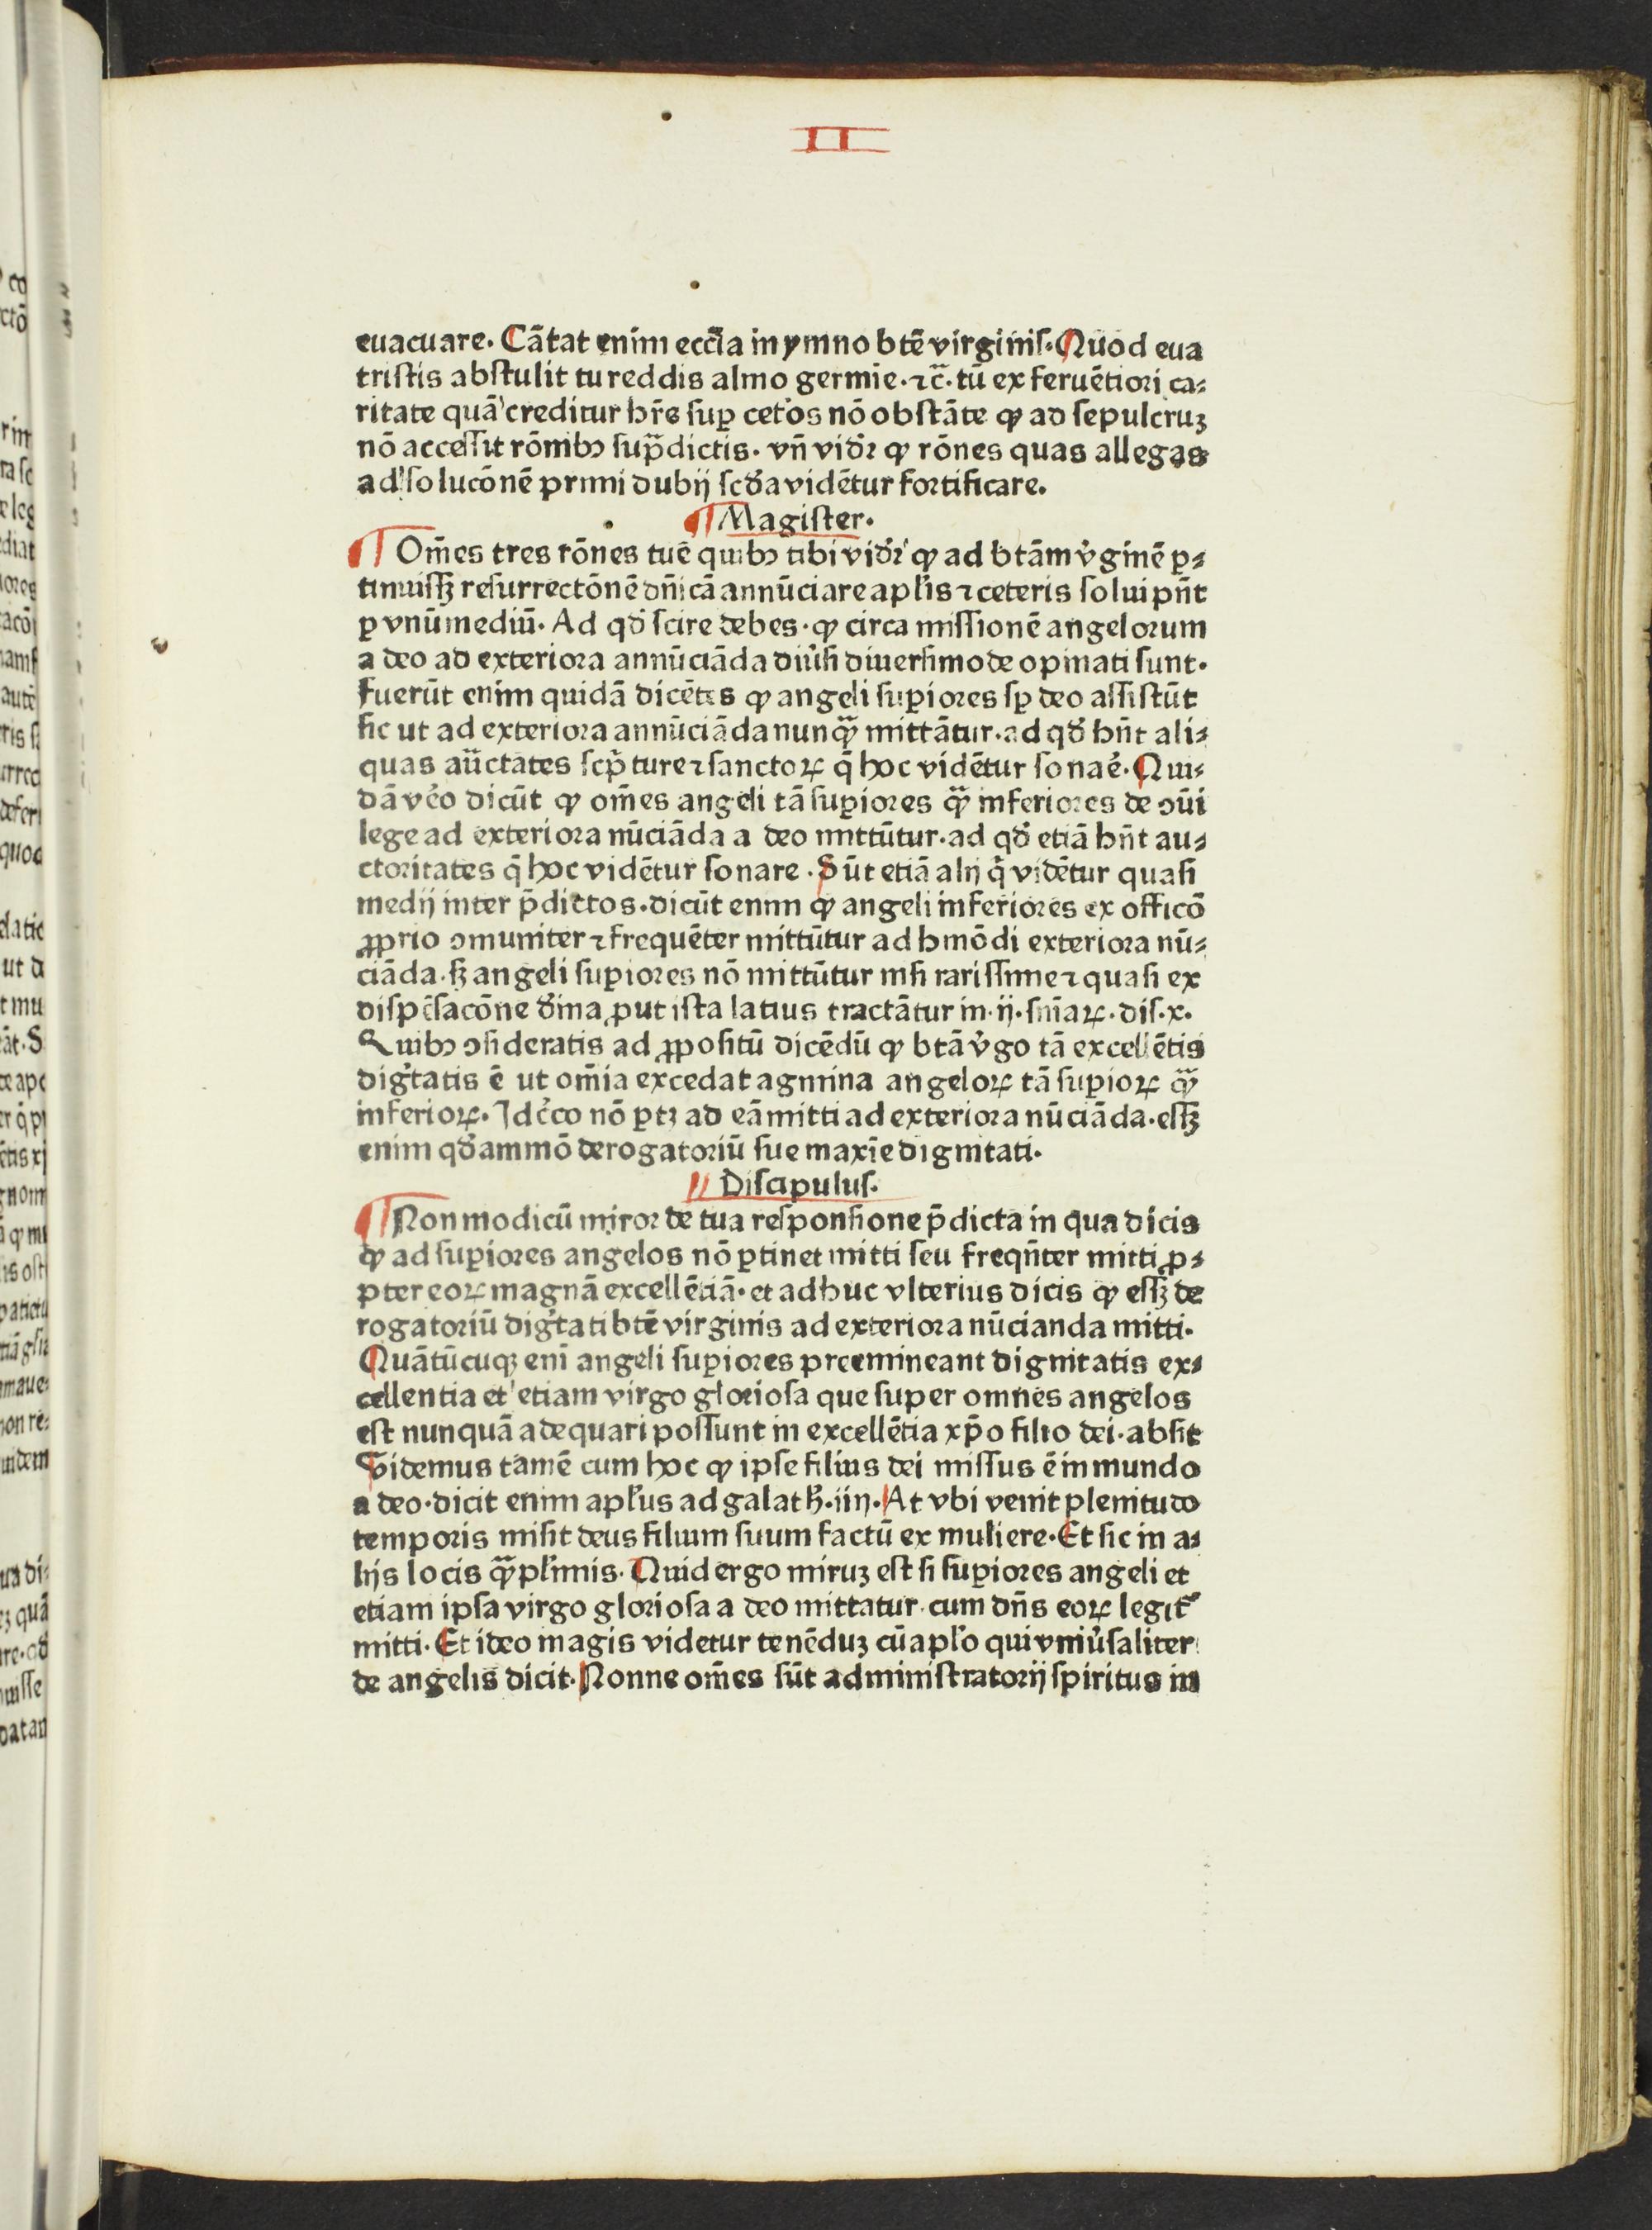 II
euacuare. Cãtat enim eccĺia in ymno btẽ virginis. Quod eua
tristis abstulit tu reddis almo germie. ⁊c̃. tũ ex feruẽtiori ca⸗
ritate quã creditur hr̃e suꝑ cet̾os nõ obstãte ꝙ ad sepulcruꝫ
nõ accessit rõnibꝰ sup̃dictis. vñ vid̾r ꝙ rõnes quas allegas
ad solucõnẽ primi dubij scd̾a vidẽtur fortificare.
Magister.
Om̃es tres rõnes tue quibꝰ tibi vid̾r ꝙ ad btãm v̾ginẽ ꝑ⸗
tinuissꝫ resurrectõnẽ dñicã annũciare apl̾is ⁊ ceteris solui pñt
ꝑ vnũ mediũ. Ad qd̾ scire debes. ꝙ circa missionẽ angelorum
a deo ad exteriora annũciãda diũsi diuersimode opinati sunt.
fuerũt enim quidã dicẽtes ꝙ angeli suꝑiores sꝑ deo assistũt
sic ut ad exteriora annũciãda nunꝙ̃ mittãtur. ad qd̾ hñt ali⸗
quas auc̃tates scp̃ture ⁊ sanctoꝝ q̃ hoc vidẽtur sonar̾e. Qui⸗
dã ve̾o dicũt ꝙ om̃es angeli tã suꝑiores ꝙ̃ inferiores de ꝯũi
lege ad exteriora nũciãda a deo mittũtur. ad qd̾ etiã hñt au⸗
ctoritates q̃ hoc vidẽtur sonare. Sũt etiã alij q̃ vidẽtur quasi
medij inter p̃dictos. dicũt enim ꝙ angeli inferiores ex officõ
ꝓprio ꝯmuniter ⁊ frequẽter mittũtur ad hmõdi exteriora nũ⸗
ciãda. sꝫ angeli suꝑiores nõ mittũtur nisi rarissime ⁊ quasi ex
dispẽsacõne d̾ina ꝓut ista latius tractãtur in. ij. snĩaꝝ. dis. x.
Quibꝰ ꝯsideratis ad ꝓpositũ dicẽdũ ꝙ btã v̾go tã excellẽtis
dig̾tatis ẽ ut om̃ia excedat agmina angeloꝝ tã suꝑioꝝ ꝙ̃
inferioꝝ. Idc̾co nõ ꝑtꝫ ad eã mitti ad exteriora nũciãda. essꝫ
enim qd̾ammõ derogatoriũ sue maxĩe dignitati.
Discipulus.
Non modicũ miror de tua responsione p̃dicta in qua dicis
ꝙ ad suꝑiores angelos nõ ꝑtinet mitti seu freqñter mitti ꝓ⸗
pter eoꝝ magnã excellẽciã. et adhuc vlterius dicis ꝙ essꝫ de
rogatoriũ dig̾tati btẽ virginis ad exteriora nũcianda mitti.
Quãtũcuqꝫ eni angeli suꝑiores preemineant dignitatis ex⸗
cellentia et etiam virgo gloriosa que super omnes angelos
est nunquã adequari possunt in excellẽtia xp̃o filio dei. absit
Videmus tamẽ cum hoc ꝙ ipse filius dei missus ẽ in mundo
a deo. dicit enim apl̾us ad galath̾. iiij. At vbi venit plenitudo
temporis misit deus filium suum factũ ex muliere. Et sic in a⸗
lijs locis ꝙ̃pl̾imis. Quid ergo miruꝫ est si suꝑiores angeli et
etiam ipsa virgo gloriosa a deo mittatur. cum dñs eoꝝ legit̾
mitti. Et ideo magis videtur tenẽduꝫ cũ apl̾o qui vniu̾saliter
de angelis dicit. Nonne om̃es sũt administratorij spiritus in